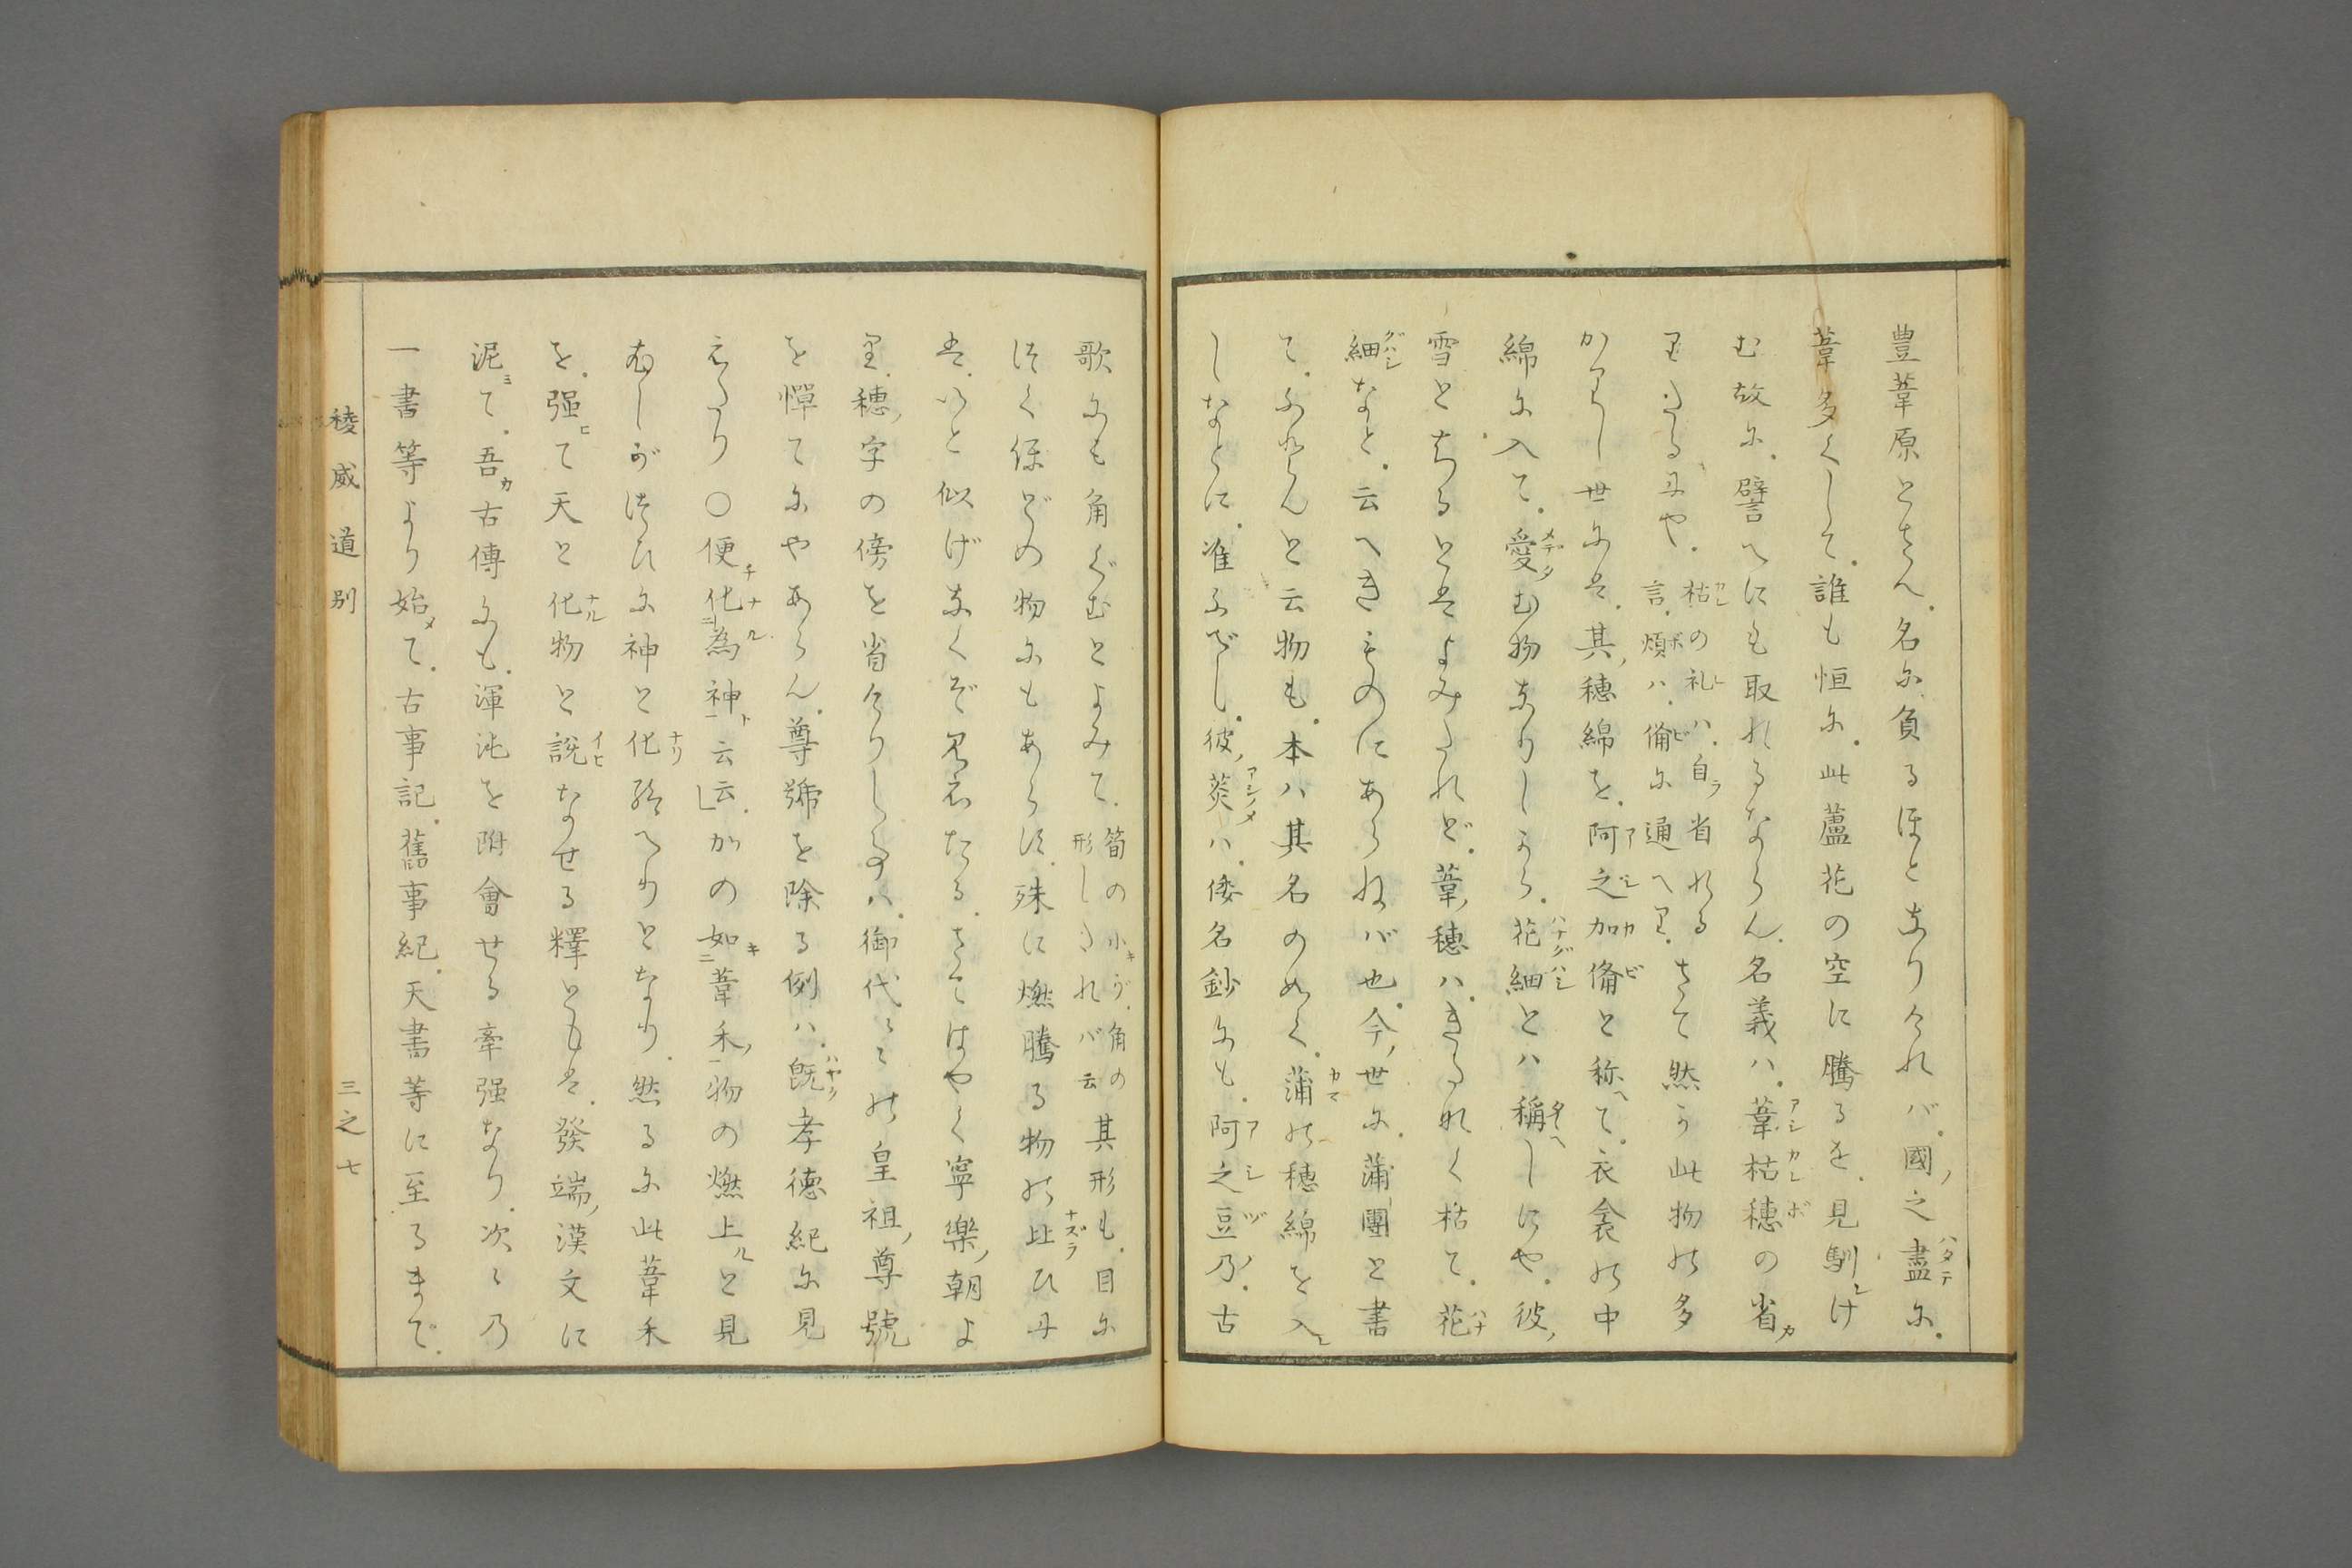 豊葦原とさへ。名に負るほとなりけれバ。國ノ之盡に。
葦多くして。誰も恒に。此蘆花の空に騰るを。見馴レけ
む故に。譬へにも取れるならん。名義ハ。葦枯穂の省カ
りたるにや。枯の礼ハ。自ラ省れる
言。煩ハ。備に通へり。さて然か此物の多
かりし世には。其ノ穂綿を。阿之加備と称ヘて。衣衾の中
綿に入て。愛む物なりしから。花細とハ稱しにや。彼ノ
雪とちるとはよみたれど。葦ノ穂ハ。きたなく枯て。花
細なと。云へきものにあらねバ也。今ノ世に。蒲團と書
て。ふとんと云物も。本ハ其名のめく。蒲の穂綿を入レ
しなとに。准ふべし。彼ノ菼ハ。倭名鈔にも。阿之豆乃。古
歌にも角ぐむとよみて。筍の小キが。角の
形したれバ云
其形も。目に
つく保どの物にもあらず。殊に燃騰る物の比ひに
は。いと似げなくぞ見えたる。さてはやく寧樂ノ朝よ
り。穂ノ字の傍を省けりしらハ。御代〻〻の皇祖ノ尊號
を憚てにやあらん。尊號を除る例ハ。既ク孝徳紀に見
えたり〇便化為神ト云云。かの如葦禾ノ物の燃上ルと見
為しがつひに神と化給へりとなり。然るに此葦禾
を。强ヒて天と化物と説なせる釋ともは。發端ノ漢文に
泥ミて。吾カ古傳にも。渾沌を附會せる牽强なり。次〻乃
一書等より始メて。古事記。舊事紀。天書等に至るまで。
稜威道別
三之七